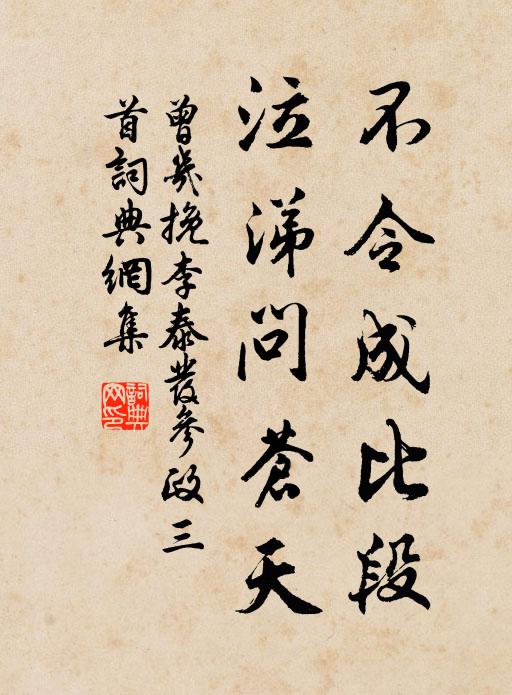 不令成比段
泣涕問蒼天
曾幾挽李泰發參政三
首詞典網集
詞典
網印